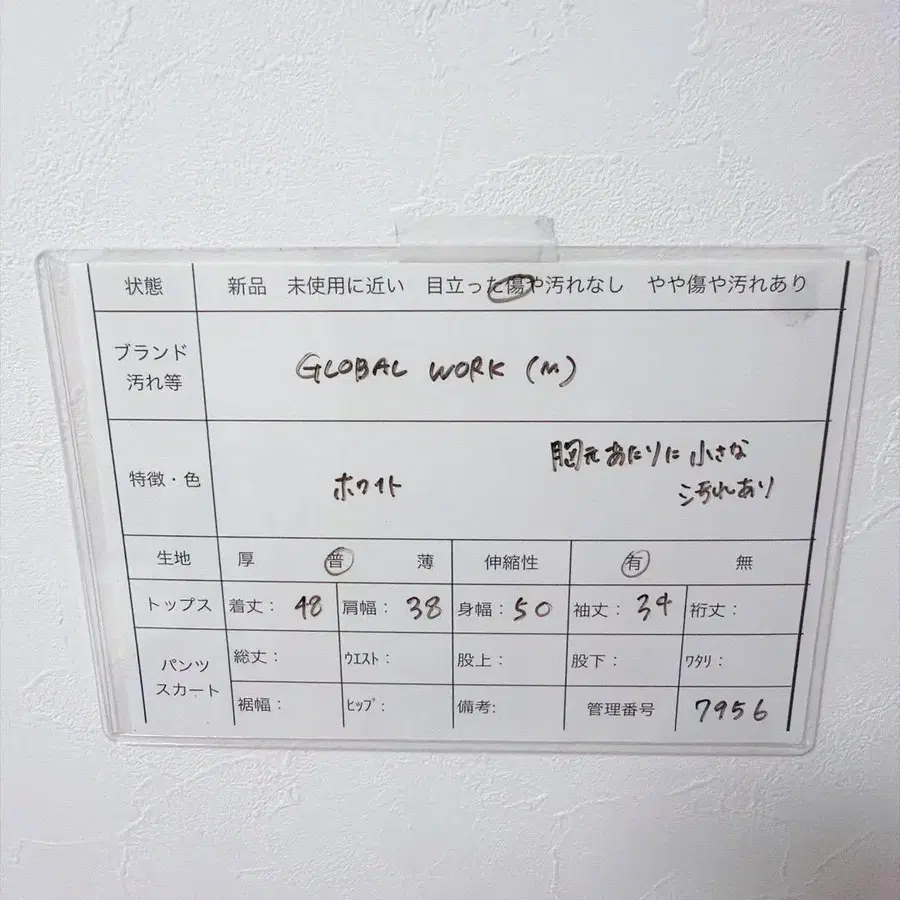 状態 新品 未使用に近い 目立った傷や汚れなし やや傷や汚れあり
ブランド
汚れ等
GLOBAL WORK (M)
特徴・色
ホワイト
胸元あたりに小さな
汚れあり
生地 厚 普 薄 伸縮性 有 無
トップス 着丈: 48 肩幅: 38 身幅: 50 袖丈: 34 裄丈:
パンツ
スカート
総丈: ウエスト: 股上: 股下: ワタリ:
裾幅: ヒップ: 備考: 管理番号 7956